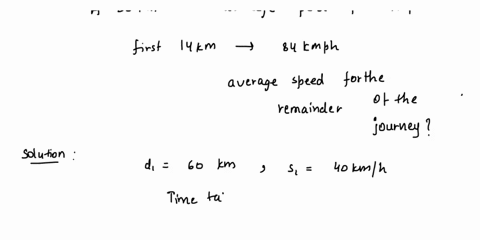 first 14 km → 84 kmph
average speed for the
remainder of the
journey?
Solution :
d₁ = 60 km , s₁ = 40 km/h
Time ta